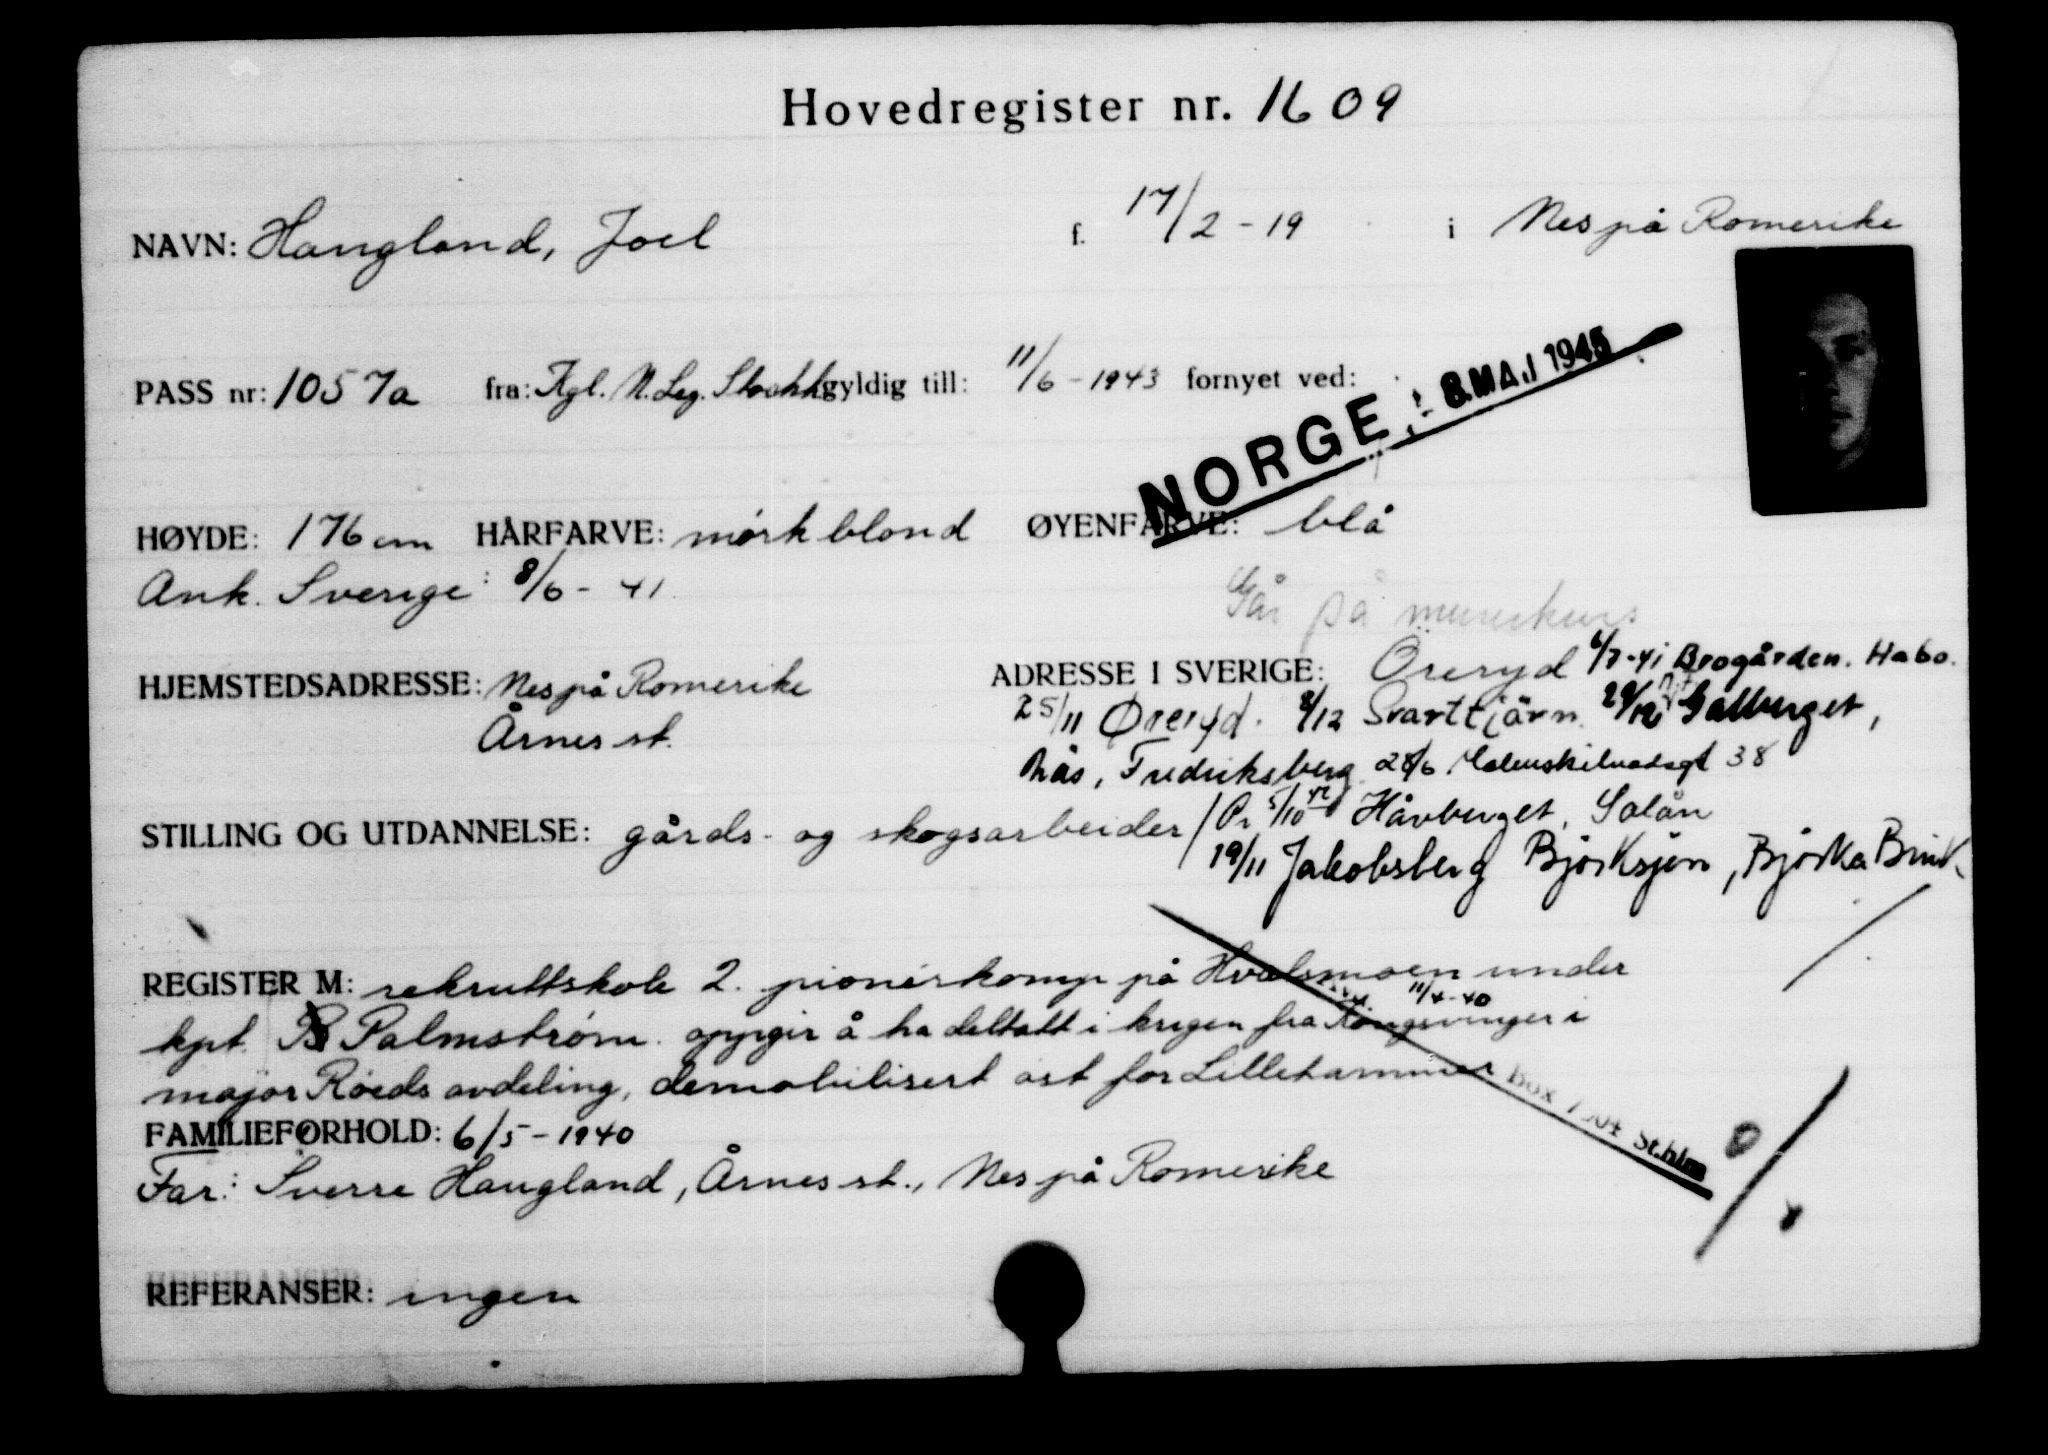 Hovedregister nr. 1609
NAVN: Haugland, Joel f. 17/2-19 i Nes på Romerike
PASS nr: 1057a fra: Kgl. N. Leg. Stockh gyldig till: 11/6-1943 fornyet ved:
NORGE 8. MAJ 1945
HØYDE: 176 cm HÅRFARVE: mørk blond ØYENFARVE: blå
Ank. Sverige: 8/6-41
Går på murerkurs
HJEMSTEDSADRESSE: Nes på Romerike
Årnes st.
ADRESSE I SVERIGE: Öreryd 6/7-41 Brogården. Habo.
25/11 Øreryd. 8/12 Svarttjärn. 29/12 Galberget,
Nås, Fredriksberg 28/6 Malmskilnadsgt 38
STILLING OG UTDANNELSE: gårds- og skogsarbeider
Pr 5/10 42 Håvberget, Solån
19/11 Jakobsberg Bjørksjøn, Bjørka Bruk
REGISTER M: rekruttskole 2. pionérkomp på Hvalsmoen under
kpt. Palmstrøm. oppgir å ha deltatt i krigen fra 11/4-40 Kongsvinger i
major Røeds avdeling, demobilisert øst for Lillehammer
Box 7504 St.hlm
FAMILIEFORHOLD: 6/5-1940
Far: Sverre Haugland, Årnes st., Nes på Romerike
REFERANSER: ingen